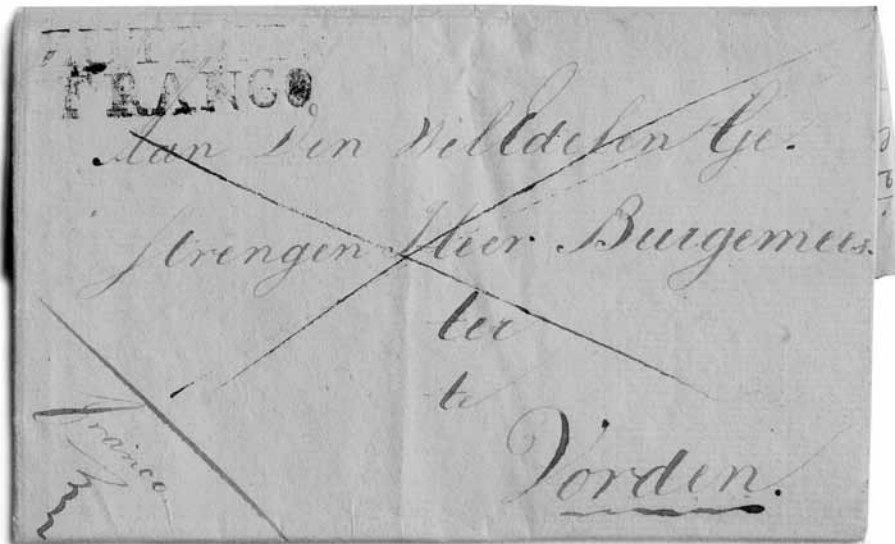 FRANCO.
Aan Den WelEdelen Ge.
strengen Heer Burgemees.
ter
te
Vorden.
Franco